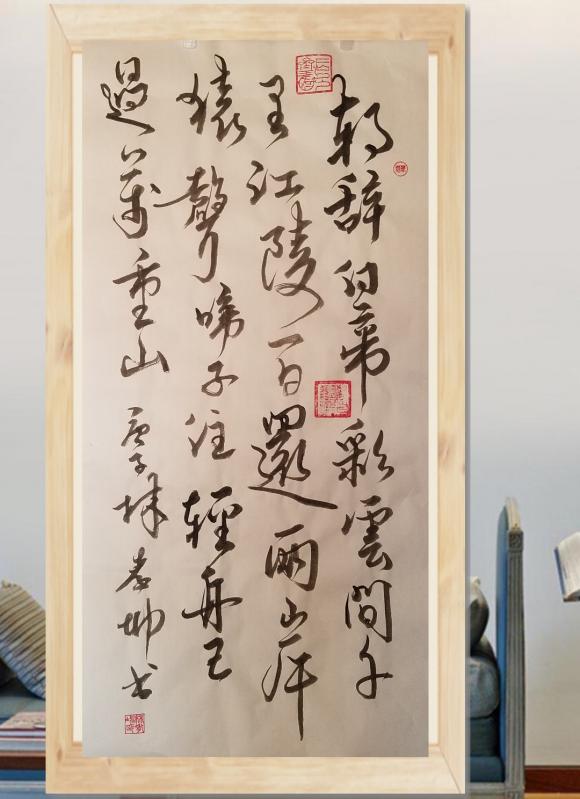 朝辭白帝彩雲間千
里江陵一日還兩岸
猿聲啼不住輕舟已
過萬重山 庚子 孝坤书